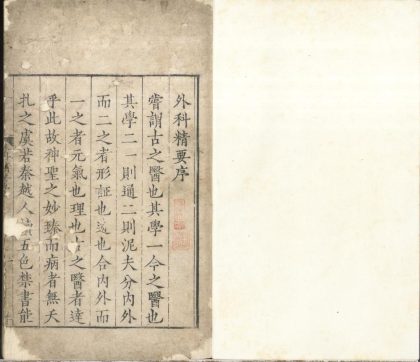 外科精要序
嘗謂古之醫也其學一今之醫也
其學二一則通二則泥夫分內外
而二之者形証也迹也合內外而
一之者元氣也理也古之醫者達
乎此故神聖之妙臻而病者無夭
札之虞若秦越人五色禁書能